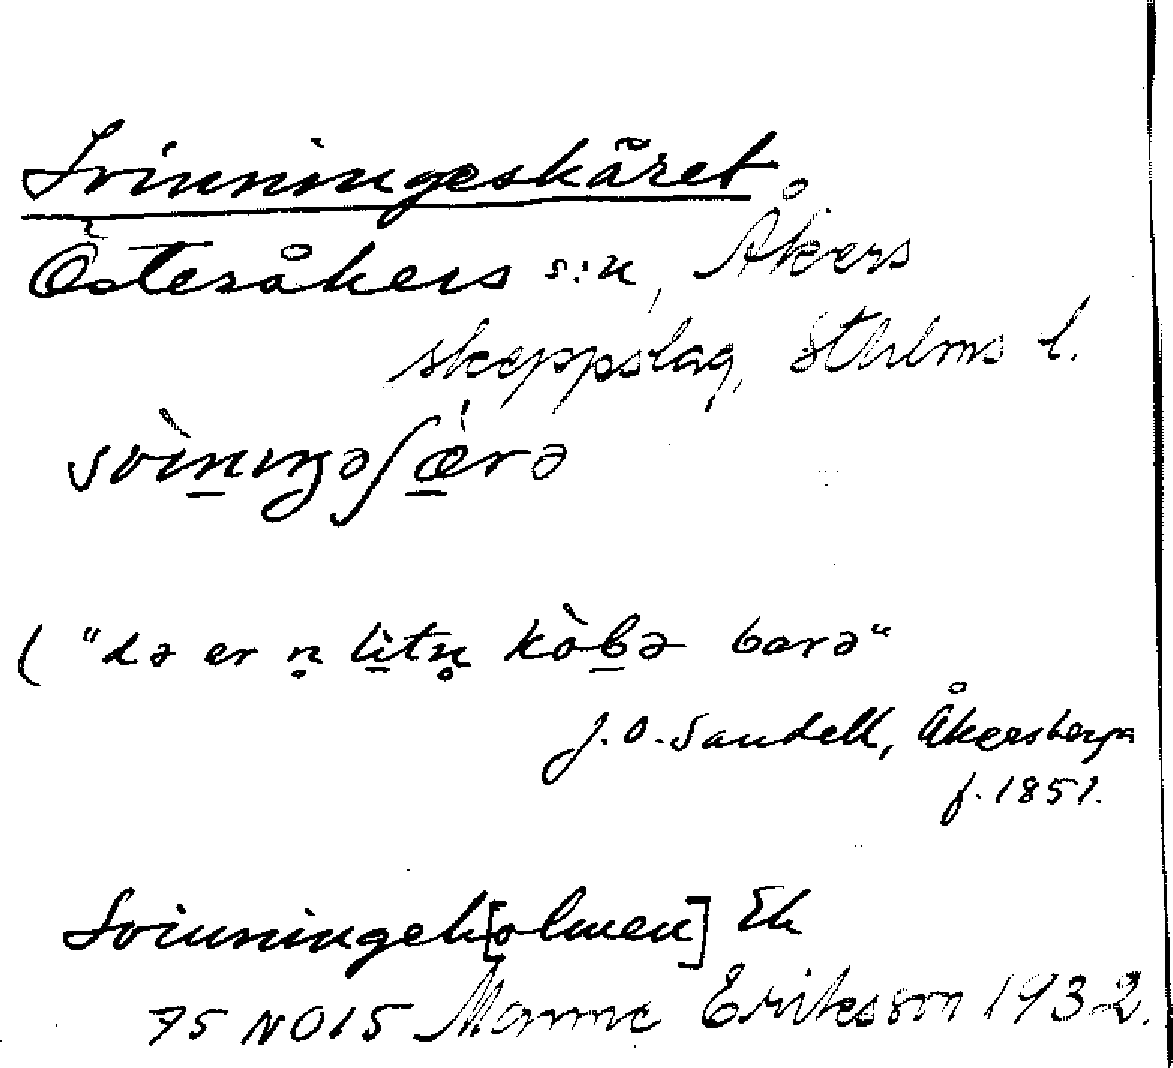 Svinningeskäret
Österåkers s:n, Åkers
skeppslag, Sthlms l.
svìn̲ıŋəʃǽ̲rə
("də er n̥ lìtn̥ kòb̲ə barə"
J. O. Sandell, Åkersberga
f. 1851.
Svinningeh[olmen] Ek
75 NO15 Manne Eriksson 1932.